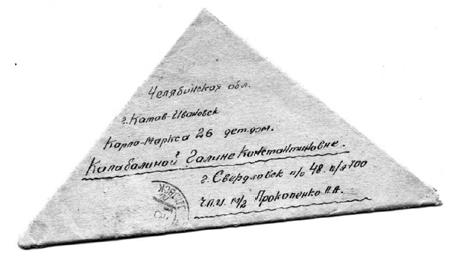 Челябинская обл.
г. Катав-Ивановск
Карла-Маркса 26 дет. дом.
Калабалиной Галине Константиновне.
г. Свердловск п/о 48. п/я 100
Прокопенко